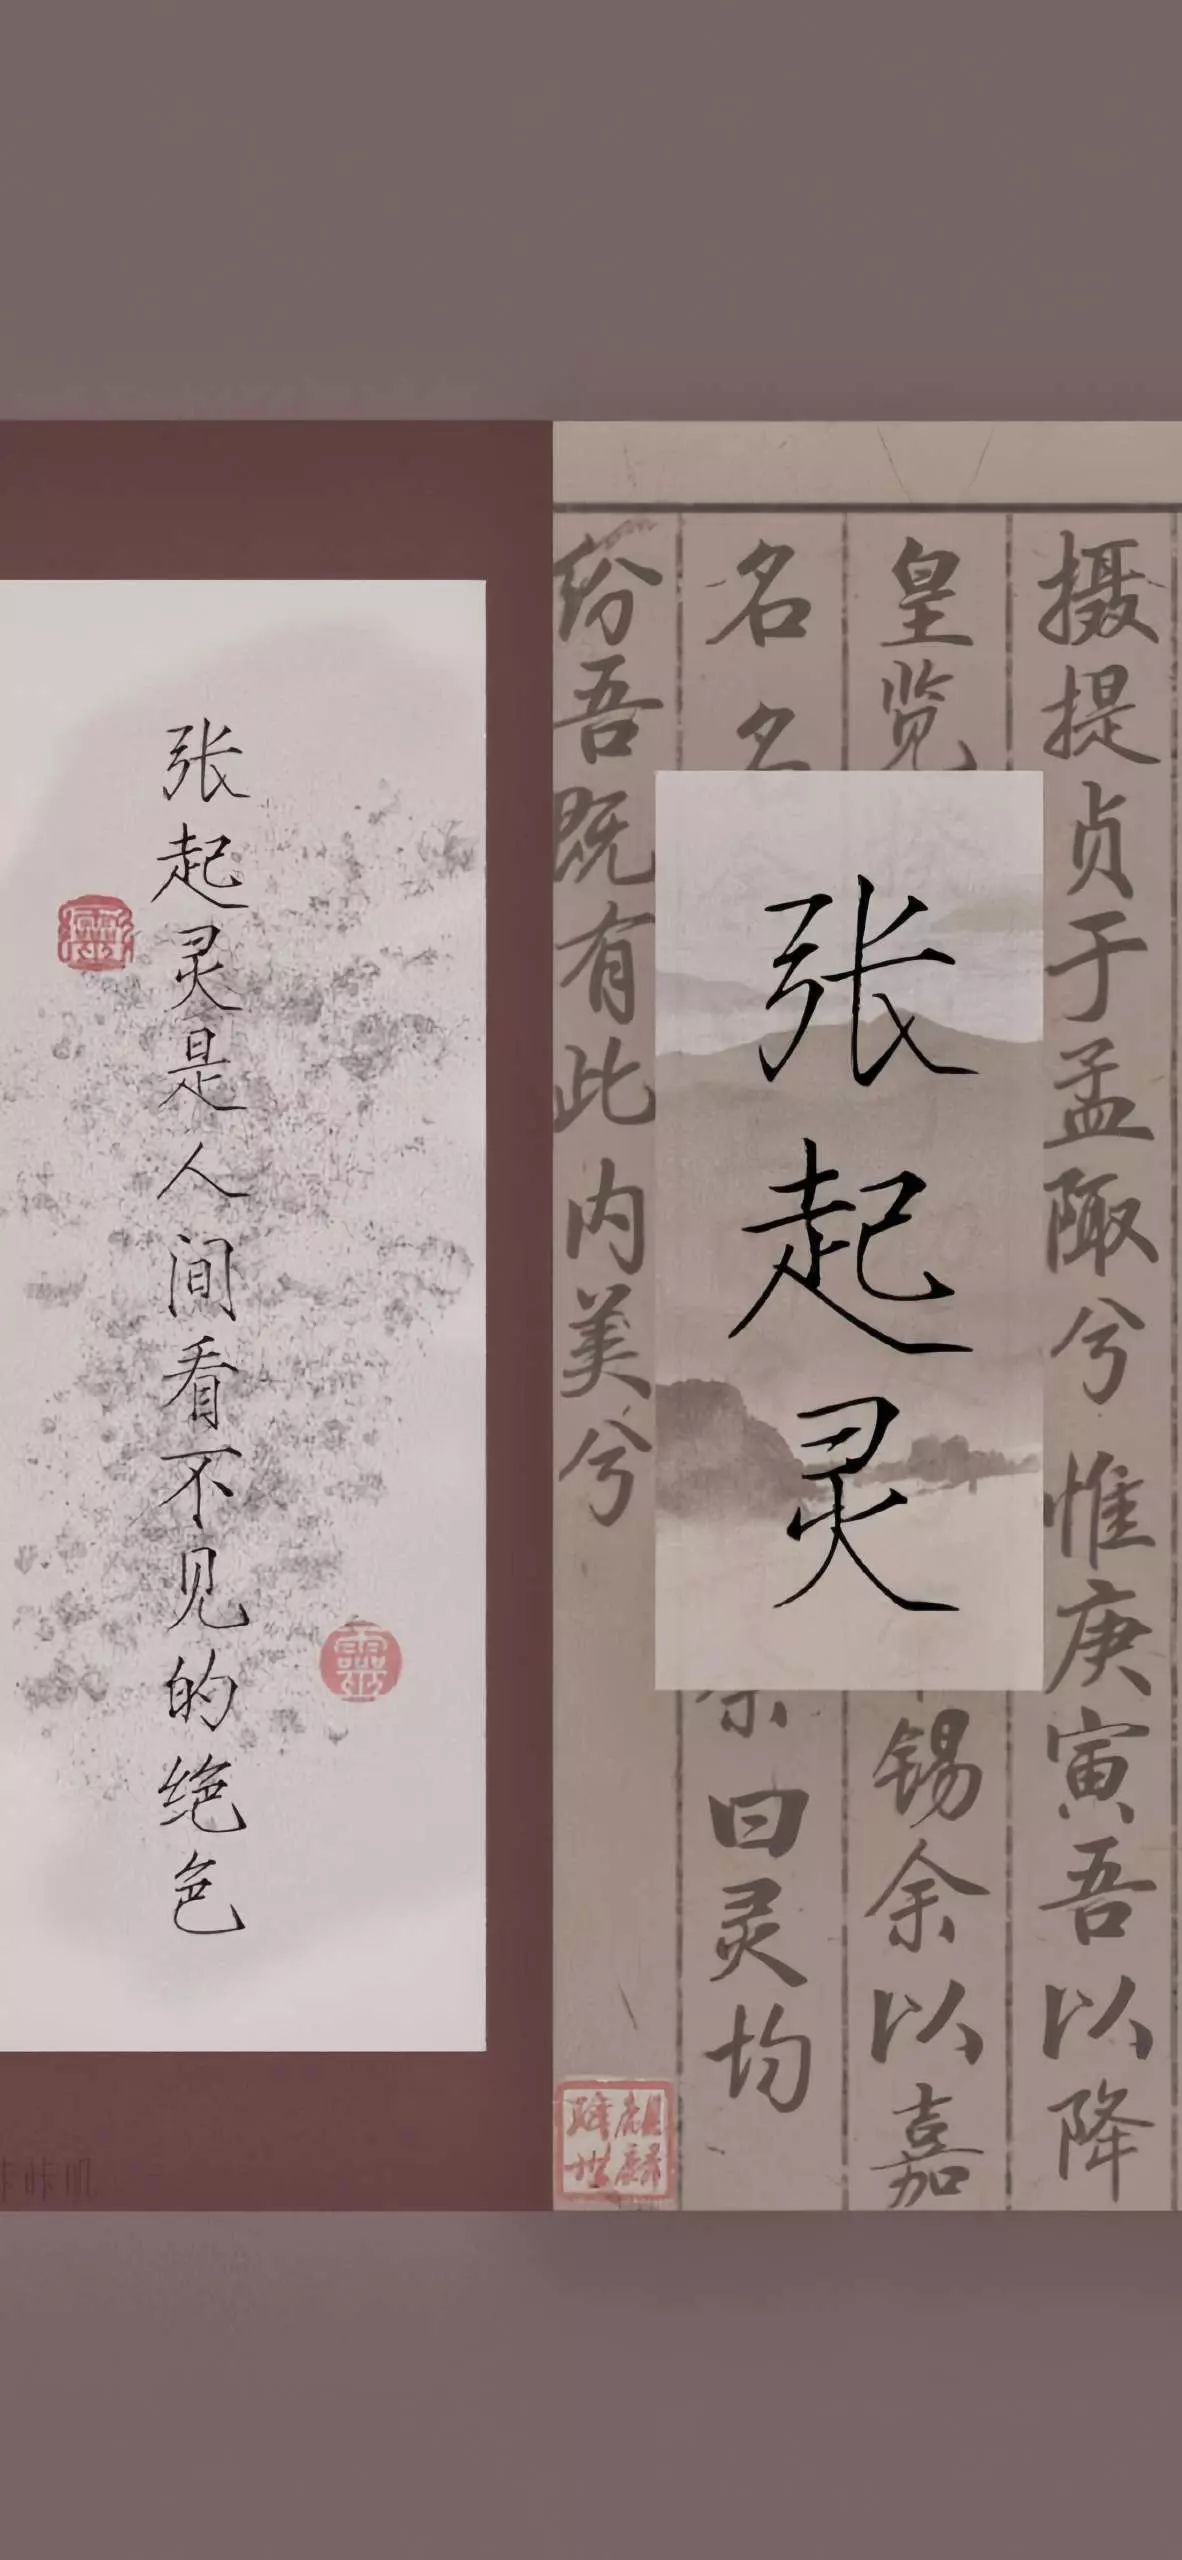 张起灵是人间看不见的绝色
靈
靈
张起灵
摄提贞于孟陬兮惟庚寅吾以降
皇览
锡余以嘉
名名
余曰灵均
纷吾既有此内美兮
麒麟